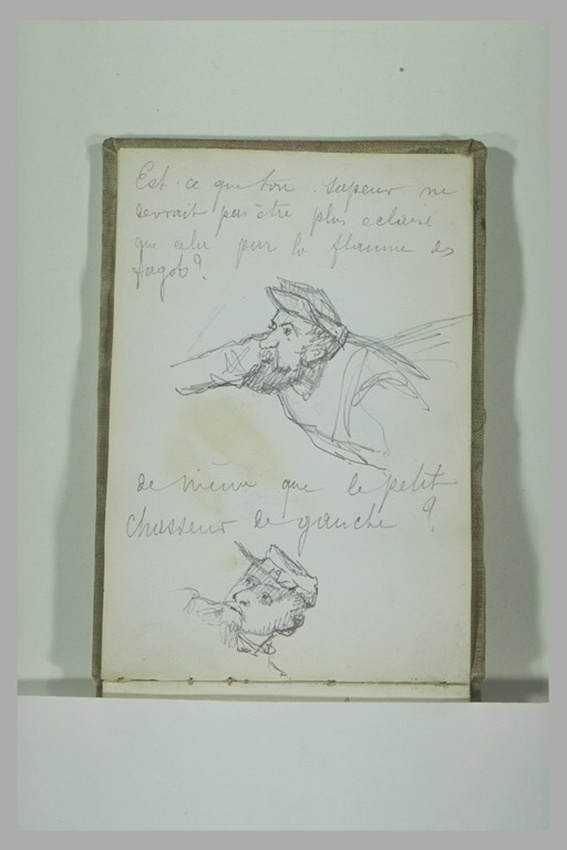 Est-ce que ton sapeur ne
devrait pas être plus eclairé
que cela par la flamme des
fagots?
de même que le petit
chasseur de gauche ?